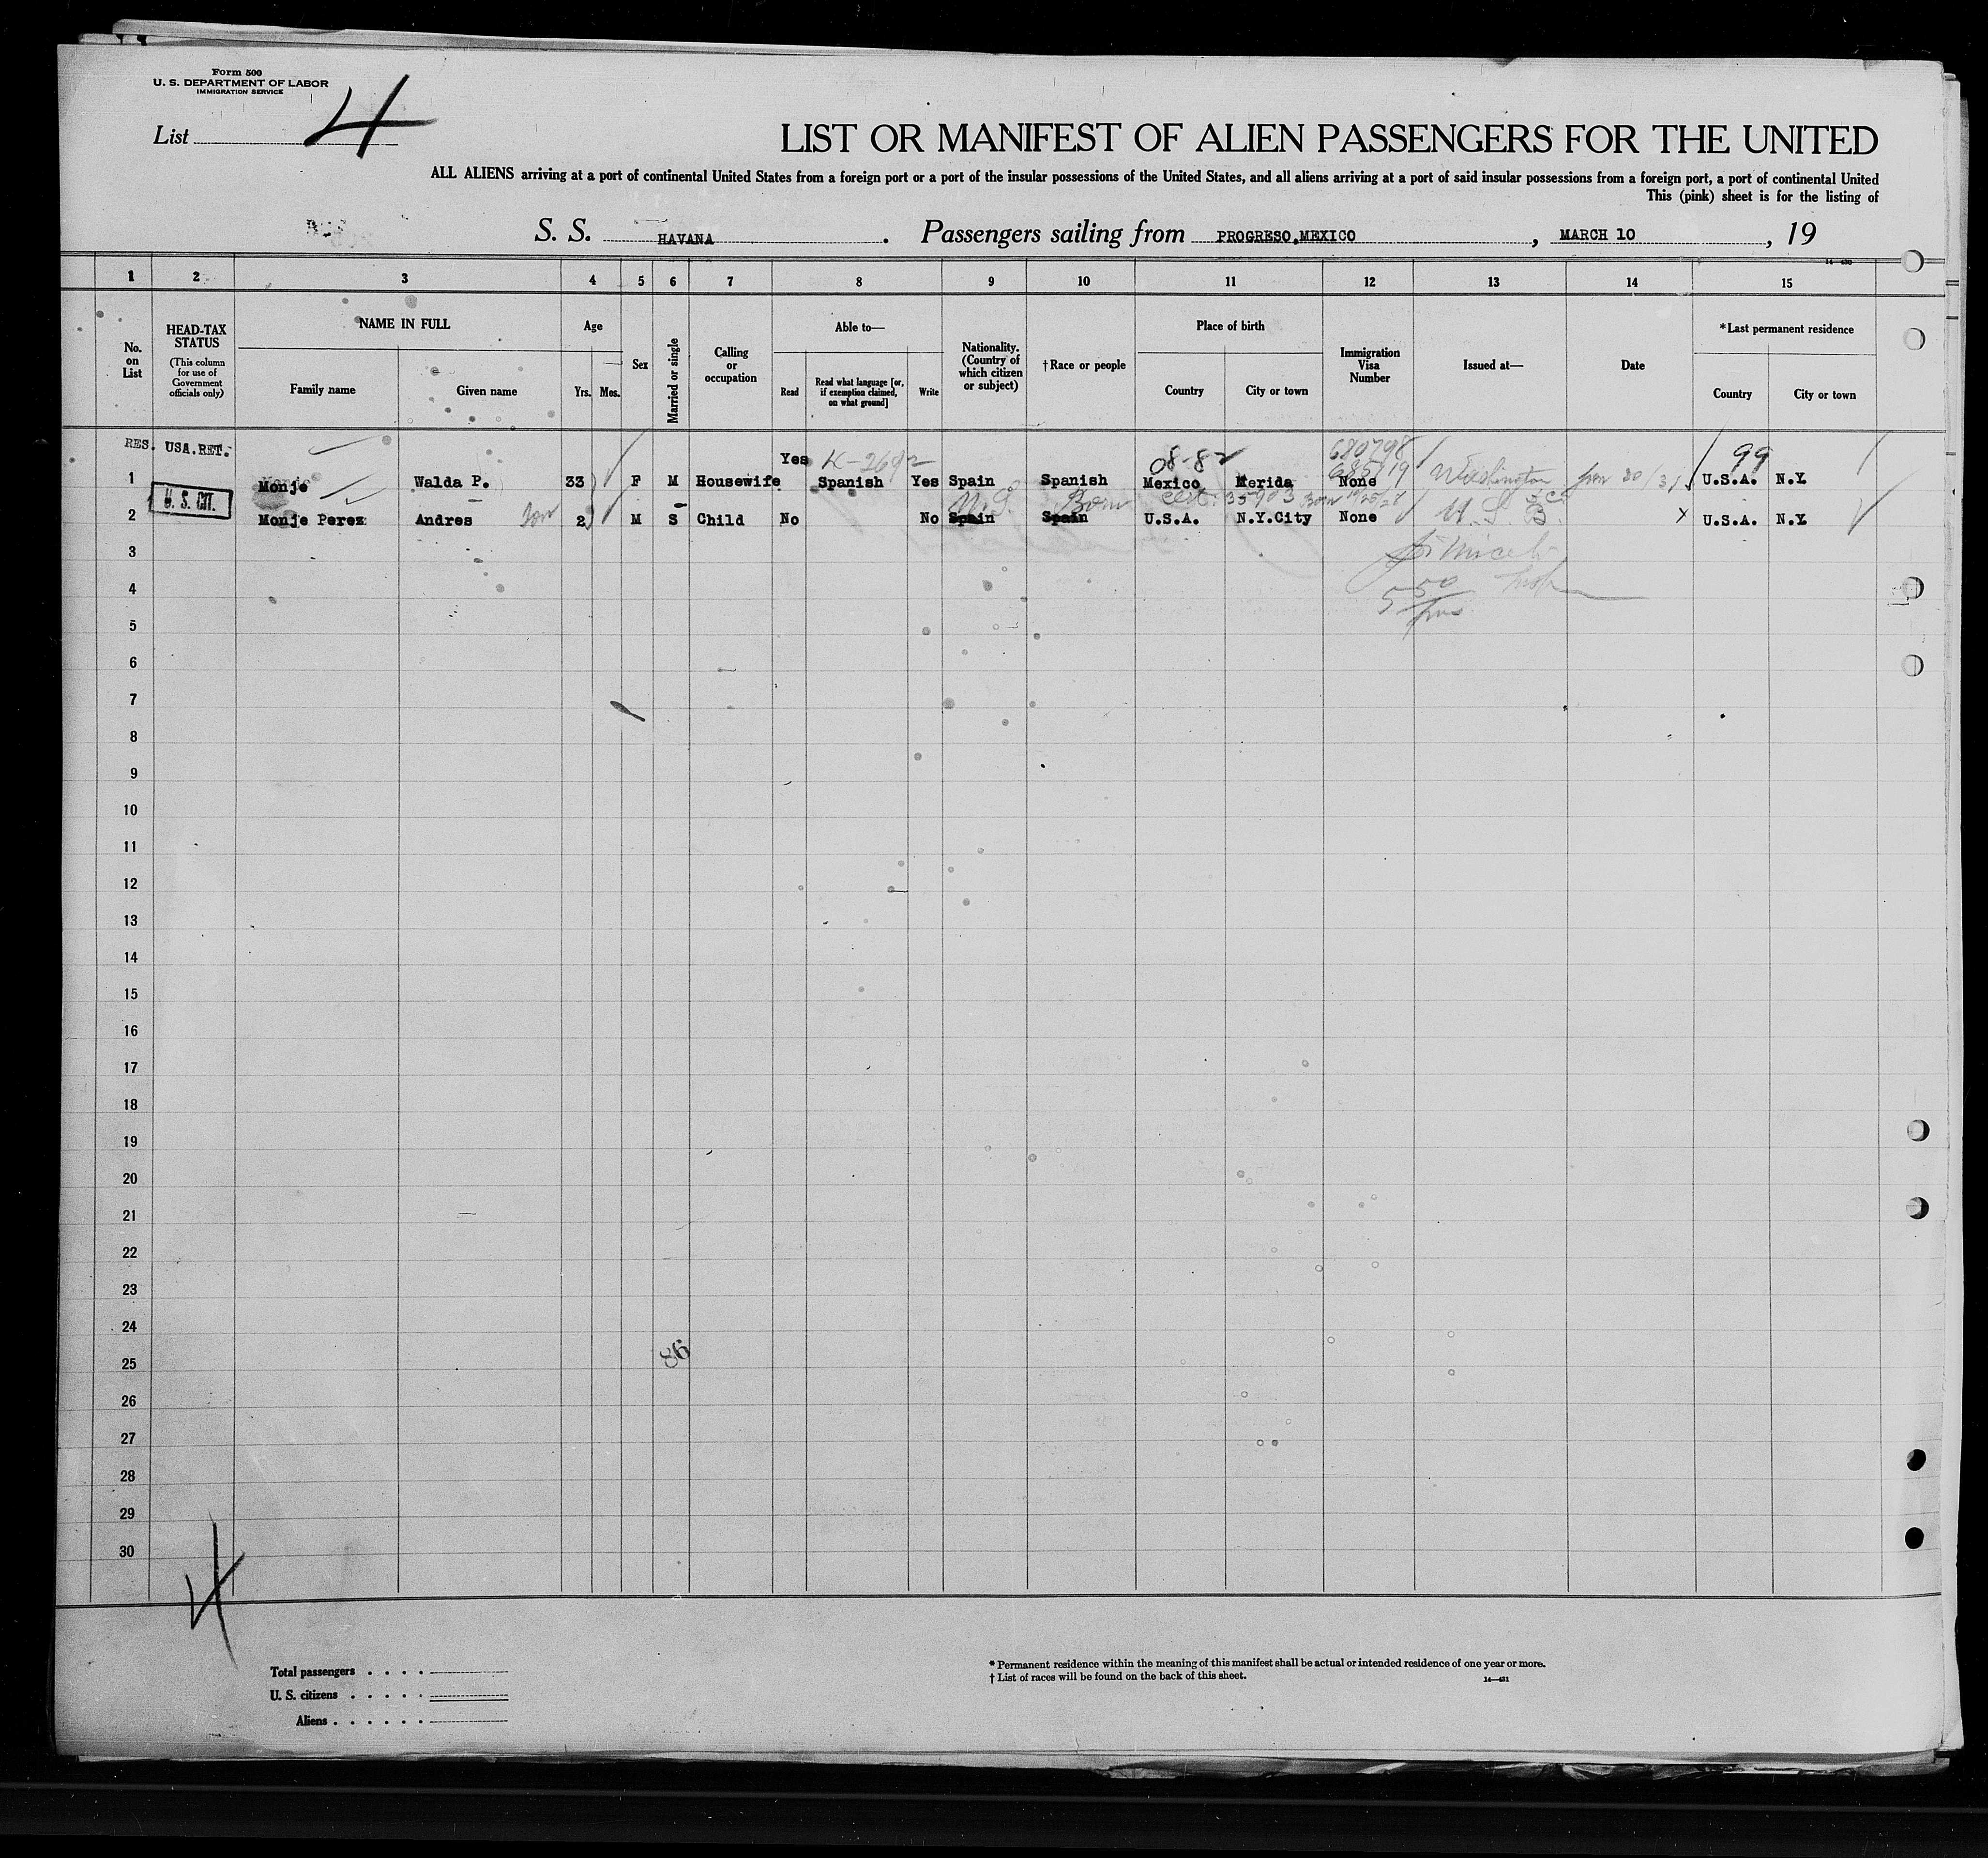 Form 500
U. S. DEPARTMENT OF LABOR
IMMIGRATION SERVICE
List 4
LIST OR MANIFEST OF ALIEN PASSENGERS FOR THE UNITED
ALL ALIENS arriving at a port of continental United States from a foreign port or a port of the insular possessions of the United States, and all aliens arriving at a port of said insular possessions from a foreign port, a port of continental United
This (pink) sheet is for the listing of
S. S. HAVANA. Passengers sailing from PROGRESO, MEXICO, MARCH 10, 19
1 2 3 4 5 6 7 8 9 10 11 12 13 14 15
No. on List
HEAD-TAX STATUS
(This column for use of Government officials only)
NAME IN FULL
Family name
Given name
Age
Yrs. Mos.
Sex
Married or single
Calling or occupation
Able to—
Read
Read what language [or, if exemption claimed, on what ground]
Write
Nationality. (Country of which citizen or subject)
† Race or people
Place of birth
Country
City or town
Immigration Visa Number
Issued at—
Date
* Last permanent residence
Country
City or town
RES. USA.RET. Yes K-2692 08-82 680798 99
1 Monje Walda P. 33 F M Housewife Spanish Yes Spain Spanish Mexico Merida None Washington U.S.A. N.Y.
U. S. CIT. U.S. Born Cert. 35903
2 Monje Perez Andres Son 2 M S Child No No Spain Spain U.S.A. N.Y.City None U.S. X U.S.A. N.Y.
3
4
5
6
7
8
9
10
11
12
13
14
15
16
17
18
19
20
21
22
23
24
86
25
26
27
28
29
30
4
Total passengers
U. S. citizens
Aliens
* Permanent residence within the meaning of this manifest shall be actual or intended residence of one year or more.
† List of races will be found on the back of this sheet.
14—431